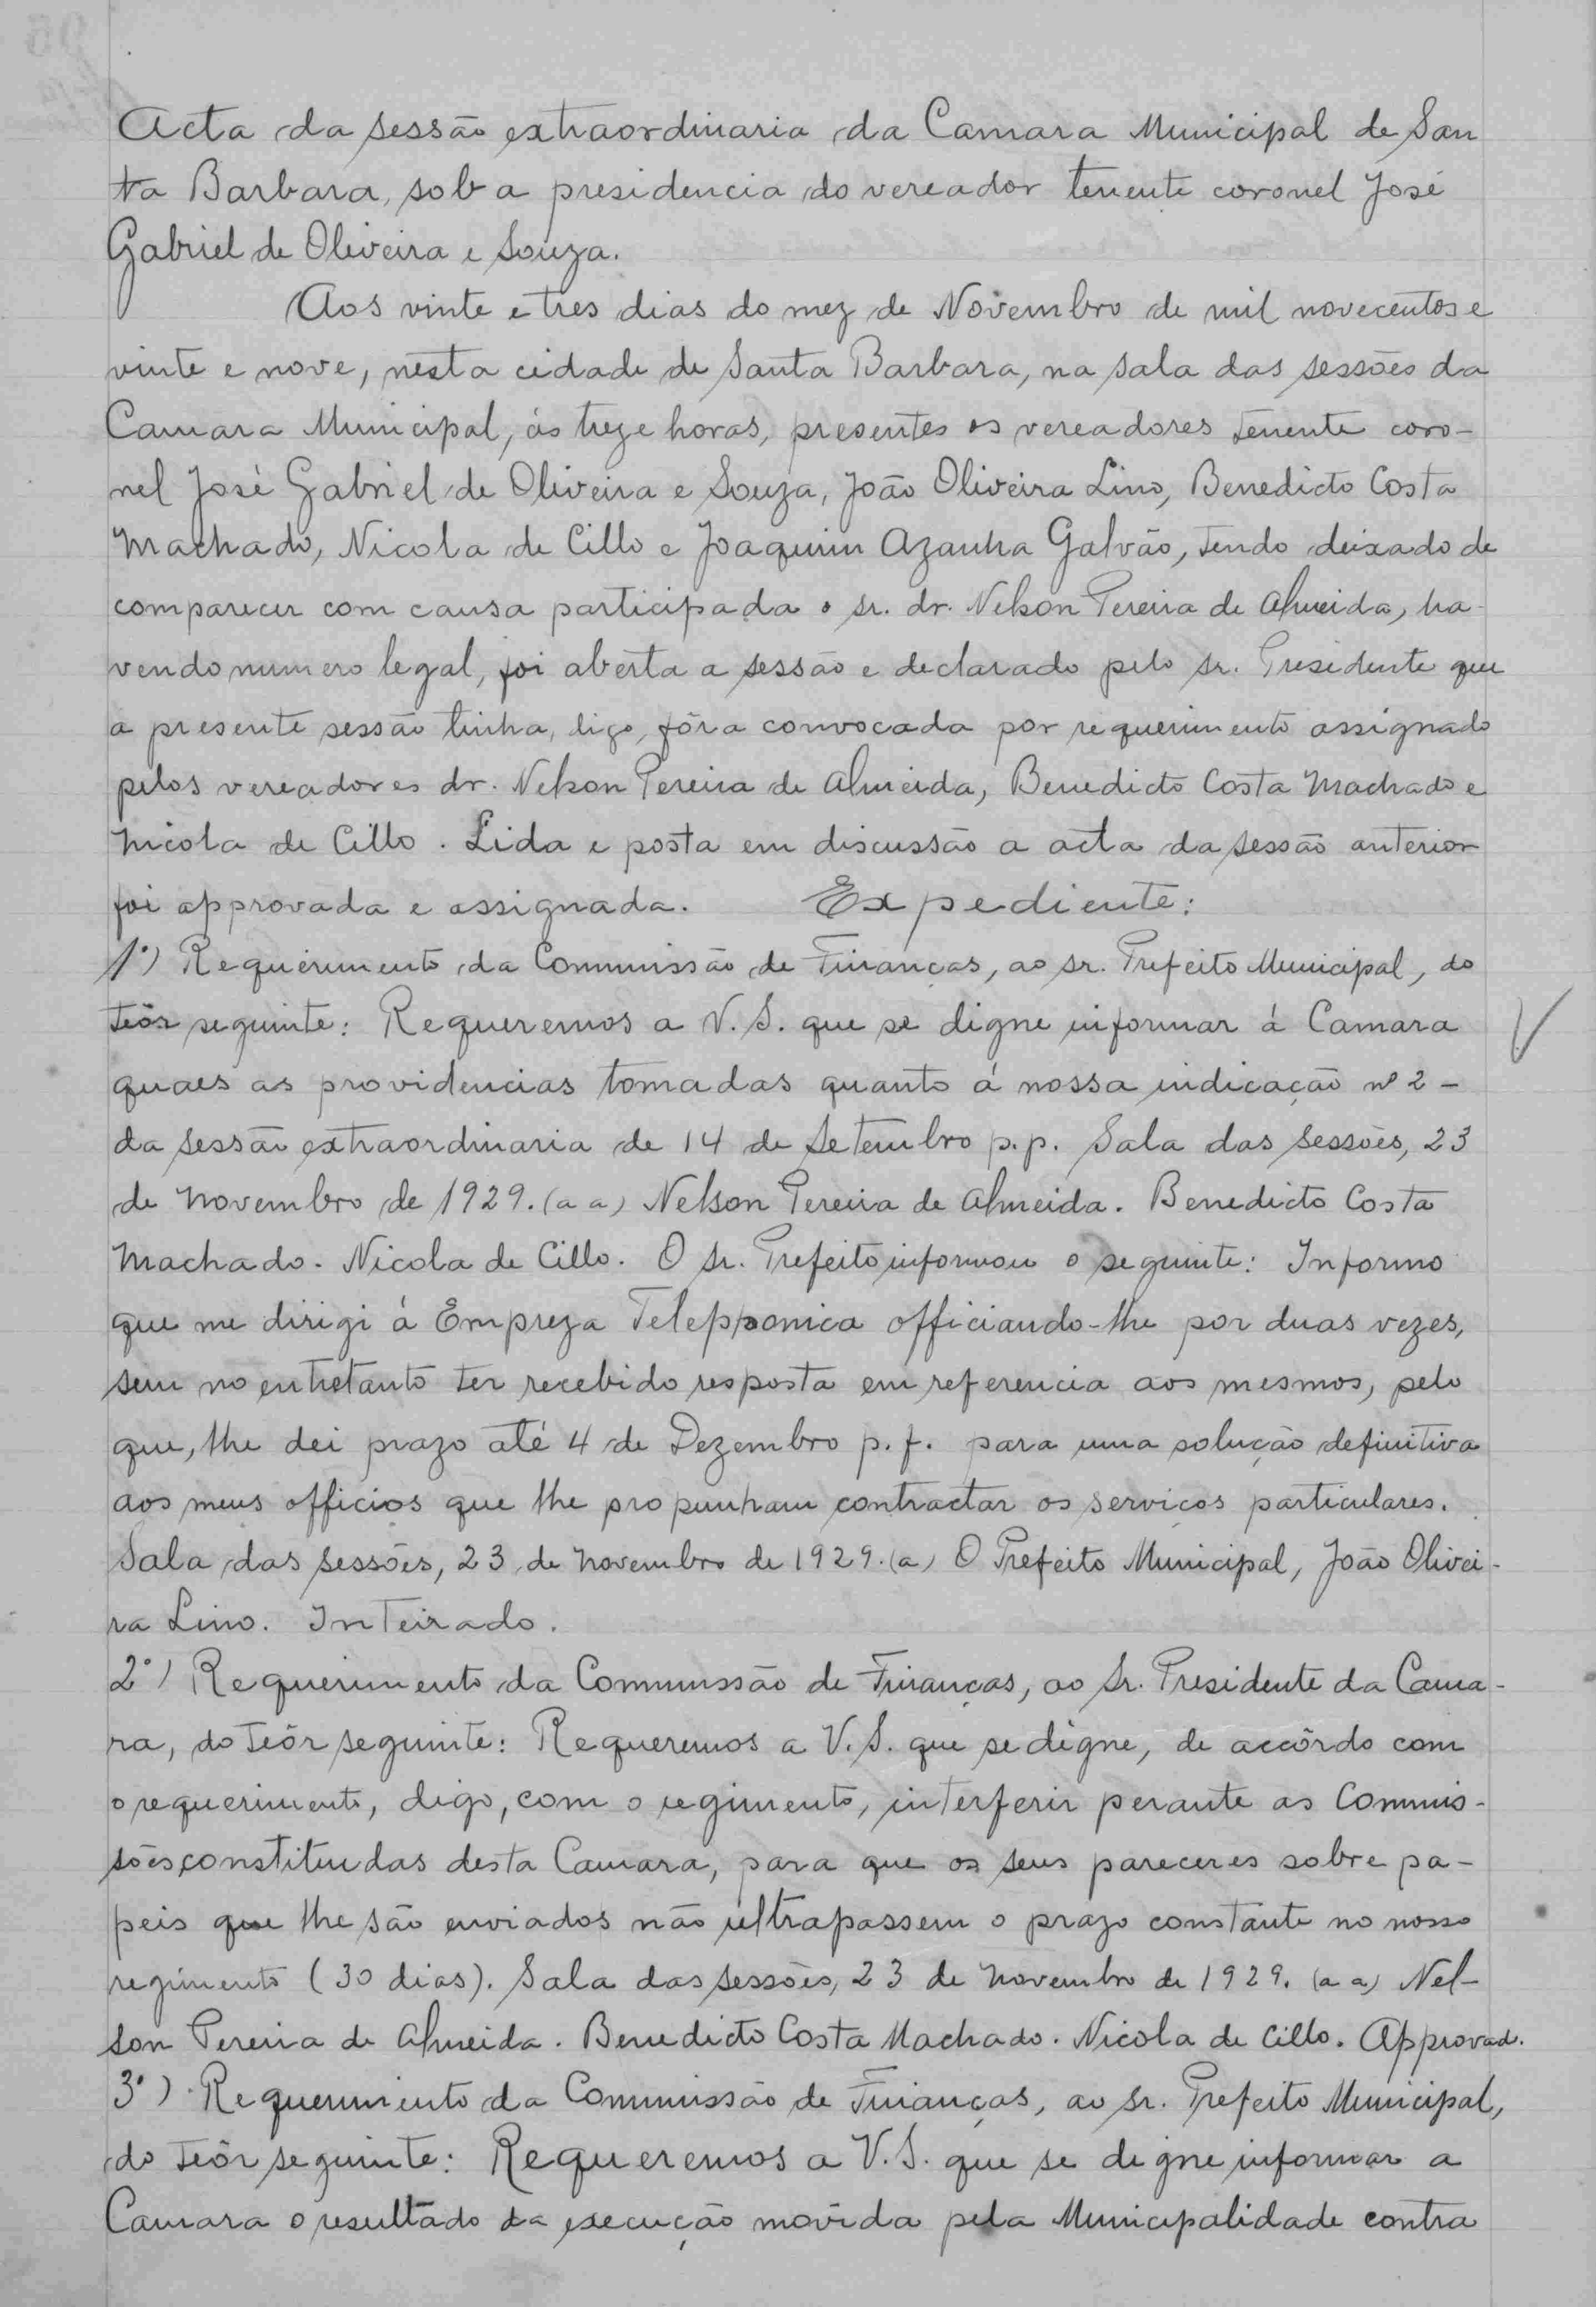 Acta da sessão extraordinaria da Camara Municipal de San
ta Barbara, sob a presidencia do vereador tenente coronel José
Gabriel de Oliveira e Souza.
Aos vinte e tres dias do mez de Novembro de mil novecentos e
vinte e nove, nesta cidade de Santa Barbara, na sala das sessões da
Camara Municipal, ás treze horas, presentes os vereadores tenente coro-
nel José Gabriel de Oliveira e Souza, João Oliveira Lino, Benedicto Costa
Machado, Nicola de Cillo e Joaquim Azanha Galvão, tendo deixado de
comparecer com causa participada o sr. dr. Nelson Pereira de Almeida, ha-
vendo numero legal, foi aberta a sessão e declarado pelo sr. Presidente que
a presente sessão tinha, digo, fôra convocada por requerimento assignado
pelos vereadores dr. Nelson Pereira de Almeida, Benedicto Costa Machado e
Nicola de Cillo. Lida e posta em discussão a acta da sessão anterior
foi approvada e assignada. Expediente:
1º) Requerimento da Commissão de Finanças, ao sr. Prefeito Municipal, do
teôr seguinte: Requeremos a V.S. que se digne informar á Camara
quaes as providencias tomadas quanto á nossa indicação nº 2 -
da sessão extraordinaria de 14 de Setembro p.p. Sala das sessões, 23
de Novembro de 1929. (a a) Nelson Pereira de Almeida. Benedicto Costa
Machado. Nicola de Cillo. O sr. Prefeito informou o seguinte: Informo
que me dirigi á Empreza Telepponica officiando-lhe por duas vezes,
sem no entretanto ter recebido resposta em referencia aos mesmos, pelo
que, lhe dei prazo até 4 de Dezembro p.f. para uma solução definitiva
aos meus officios que lhe propunham contractar os serviços particulares.
Sala das sessões, 23 de Novembro de 1929. (a) O Prefeito Municipal, João Olivei-
ra Lino. Inteirado.
2º) Requerimento da Commissão de Finanças, ao Sr. Presidente da Cama-
ra, do teôr seguinte: Requeremos a V.S. que se digne, de accôrdo com
o requerimento, digo, com o regimento, interferir perante as Commis-
sões constituidas desta Camara, para que os seus pareceres sobre pa-
peis que lhe são enviados não ultrapassem o prazo constante no nosso
regimento (30 dias). Sala das sessões, 23 de Novembro de 1929. (a a) Nel-
son Pereira de Almeida. Benedicto Costa Machado. Nicola de Cillo. Approvad.
3º) Requerimento da Commissão de Finanças, ao sr. Prefeito Municipal,
do teôr seguinte: Requeremos a V.S. que se digne informar a
Camara o resultado da execução movida pela Municipalidade contra